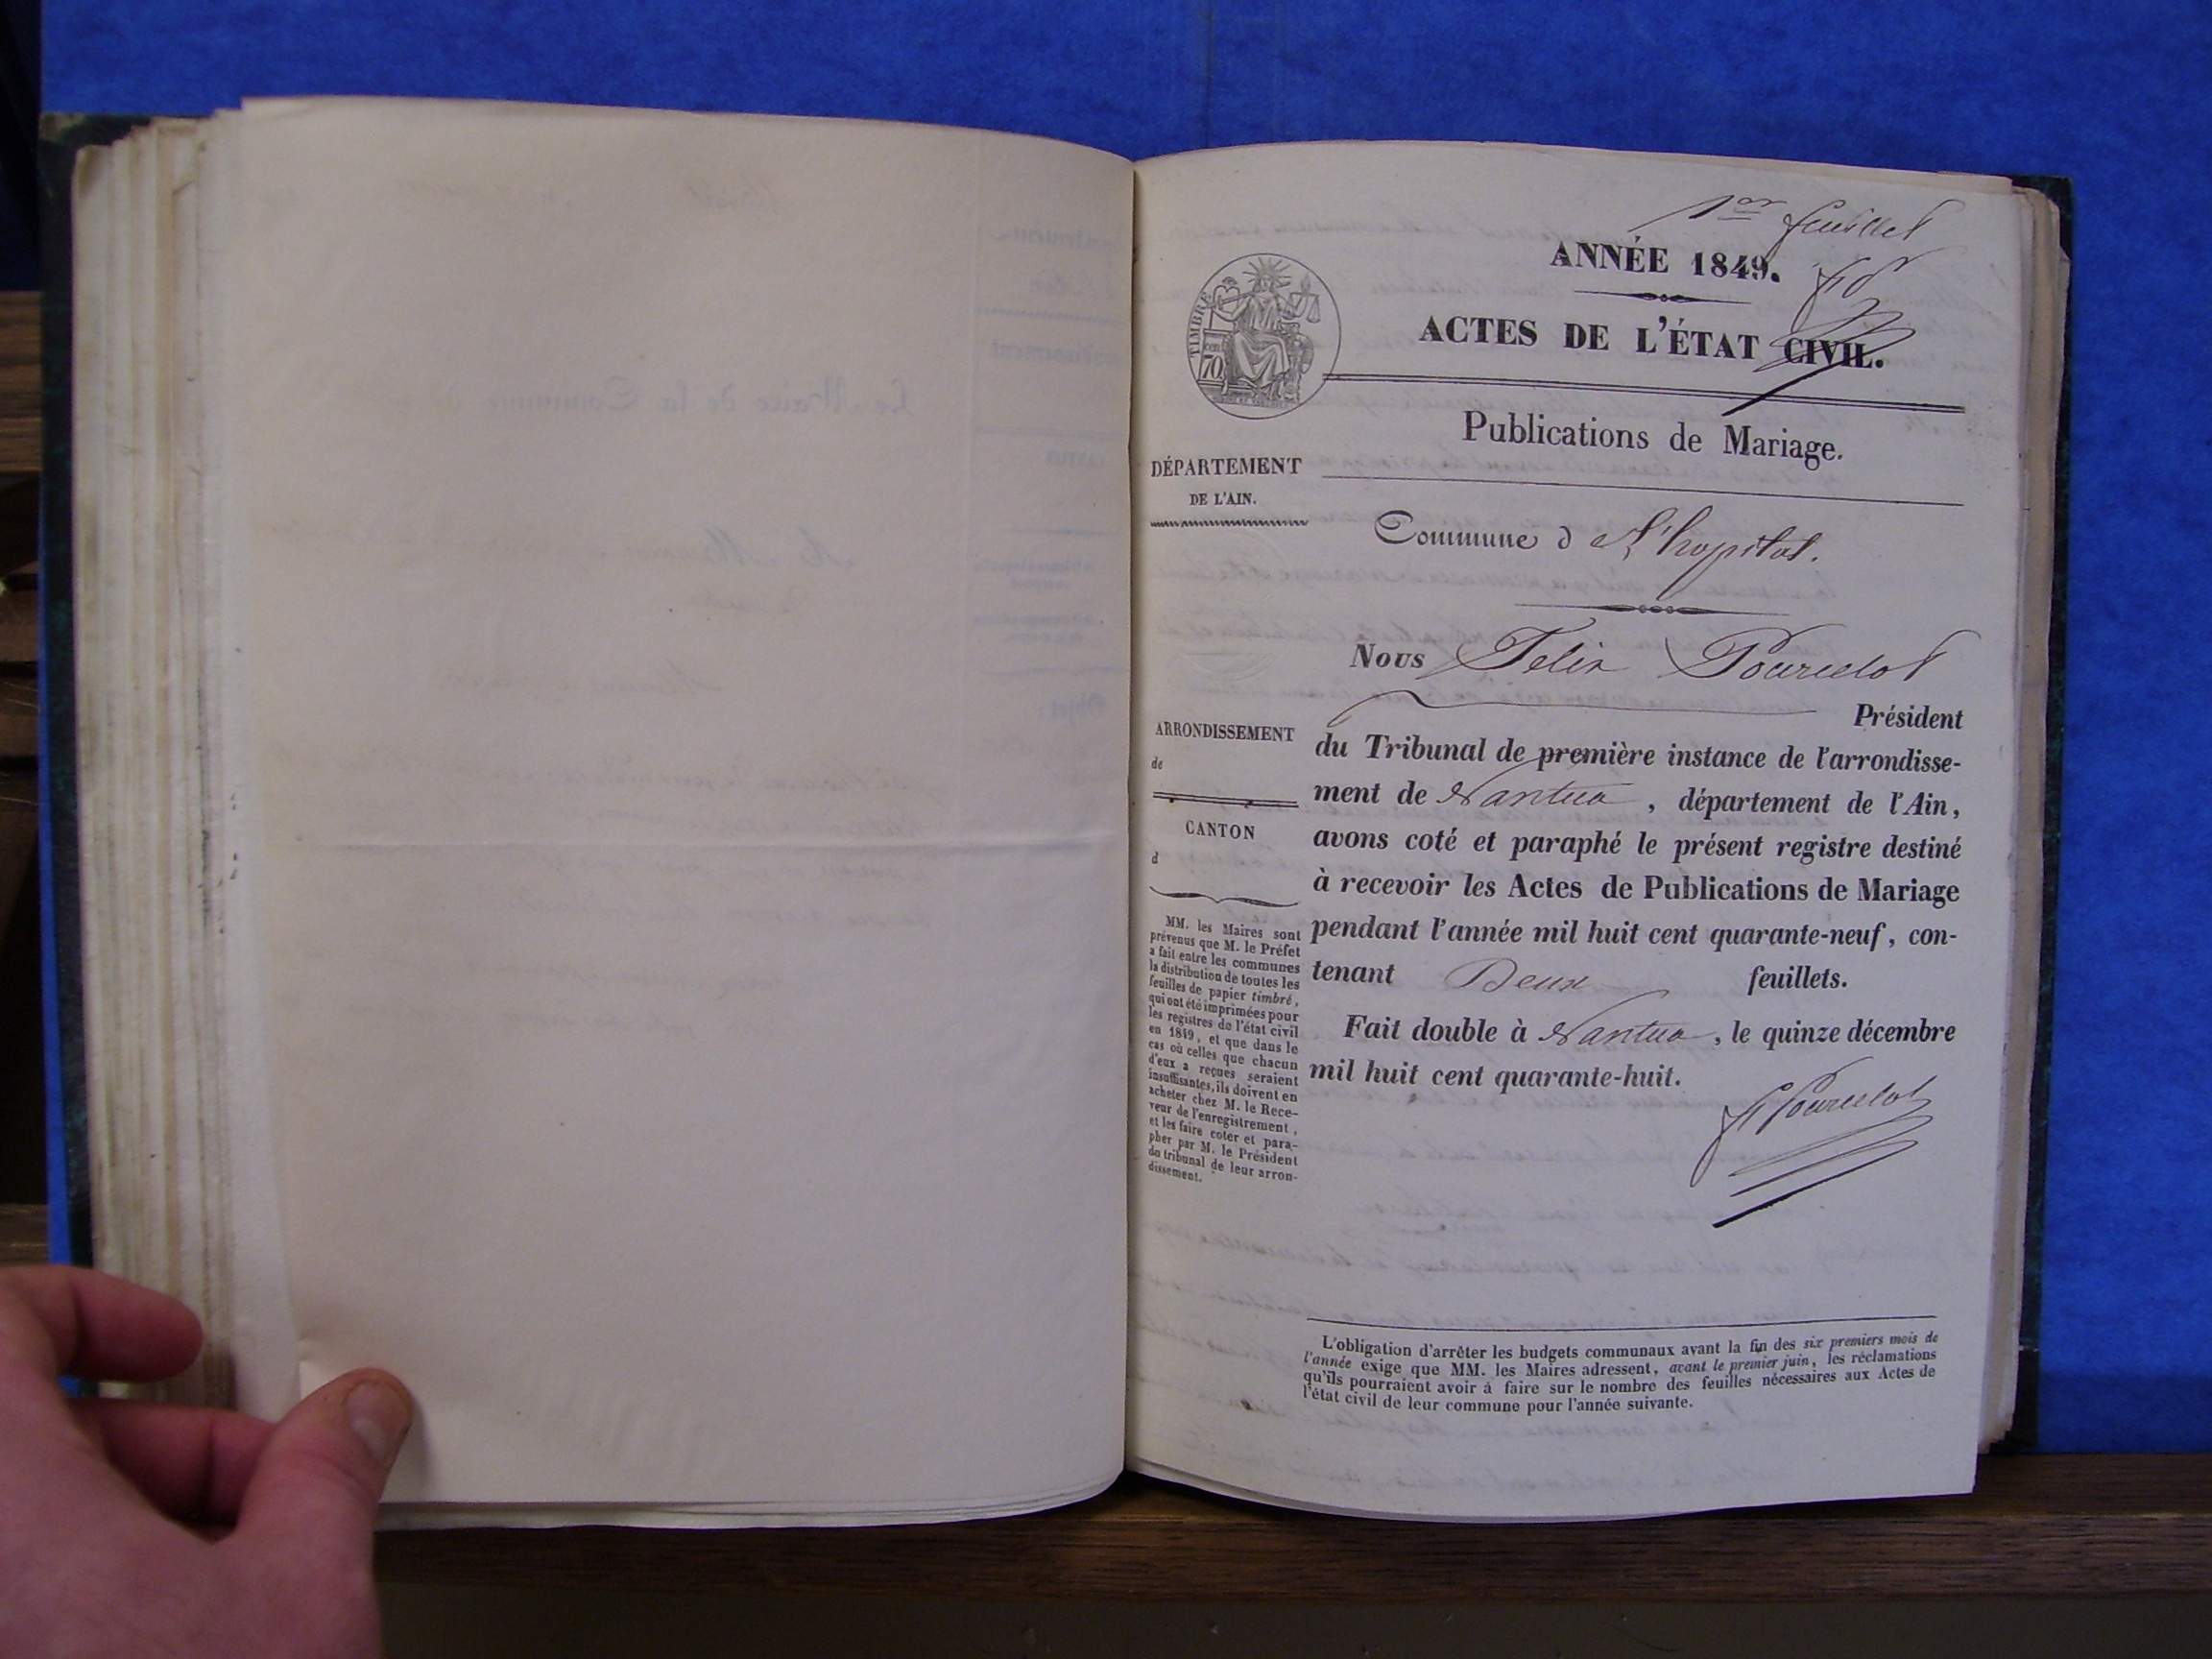 1er feuillet
ANNÉE 1849.
fP
TIMBRE
70
ACTES DE L'ÉTAT CIVIL.
Publications de Mariage.
DÉPARTEMENT
DE L'AIN.
Commune d L'hopital.
Nous Felix Pourcelot
Président
du Tribunal de première instance de l'arrondisse-
ment de Nantua , département de l'Ain,
avons coté et paraphé le présent registre destiné
à recevoir les Actes de Publications de Mariage
pendant l'année mil huit cent quarante-neuf, con-
tenant Deux feuillets.
Fait double à Nantua, le quinze décembre
mil huit cent quarante-huit.
f Pourcelot
ARRONDISSEMENT
de
CANTON
d
MM. les Maires sont
prévenus que M. le Préfet
a fait entre les communes
la distribution de toutes les
feuilles de papier timbré,
qui ont été imprimées pour
les registres de l'état civil
en 1849, et que dans le
cas où celles que chacun
d'eux a reçues seraient
insuffisantes, ils doivent en
acheter chez M. le Rece-
veur de l'enregistrement,
et les faire coter et para-
pher par M. le Président
du tribunal de leur arron-
dissement.
L'obligation d'arrêter les budgets communaux avant la fin des six premiers mois de
l'année exige que MM. les Maires adressent, avant le premier juin, les réclamations
qu'ils pourraient avoir à faire sur le nombre des feuilles nécessaires aux Actes de
l'état civil de leur commune pour l'année suivante.